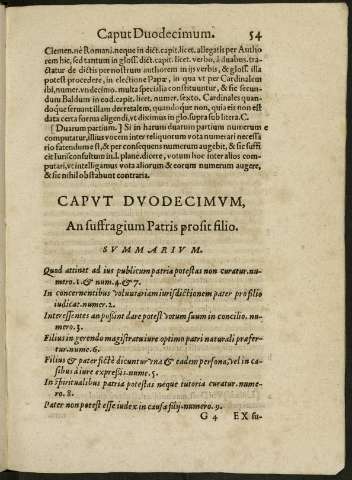 Caput Duodecimum. 54
Clemen. nè Romani. neque in dict. capit. licet. allegatis per Autho
rem hic, sed tantum in gloss. dict. capit. licet. verbo, à duabus. tra-
ctatur de dictis per nostrum authorem in ijs verbis, & gloss. illa
potest procedere, in electione Papæ, in qua vt per Cardinalem
ibi, numer. vndecimo. multa specialia constituuntur, & sic secun-
dum Baldum in eod. capit. licet. numer. sexto. Cardinales quan-
doque seruant illam decretalem, quandoque non, quia eis non est
data certa forma eligendi, vt diximus in glo. supra sub litera. C.
[Duarum partium.] Si in harum duarum partium numerum e
computatur, illius vocem inter reliquorum vota numerari necessa
rio fatendum est, & per consequens numerum augebit, & sic suffi
cit Iurisconsultum in l. plane. dicere, votum hoc inter alios com-
putari, vt intelligamus vota aliorum & eorum numerum augere,
& sic nihil obstabunt contraria.
CAPVT DVODECIMVM,
An suffragium Patris prosit filio.
SVMMARIVM.
Quod attinet ad ius publicum patria potestas non curatur. nu-
mero. 1. & num. 4. & 7.
In concernentibus voluntariam iurisdictionem pater pro filio
iudicat. numer. 2.
Interessentes an possint dare potest votum suum in concilio. nu-
mero. 3.
Filius in gerendo magistratu iure optimo patri naturali præfer-
tur. nume. 6.
Filius & pater fictè dicuntur vna & eadem persona, vel in ca-
sibus à iure expressis. nume. 5.
In spiritualibus patria potestas neque tutoria curatur. nume-
ro. 8.
Pater non potest esse iudex in causa filij. numero. 9.
G 4 EX su-